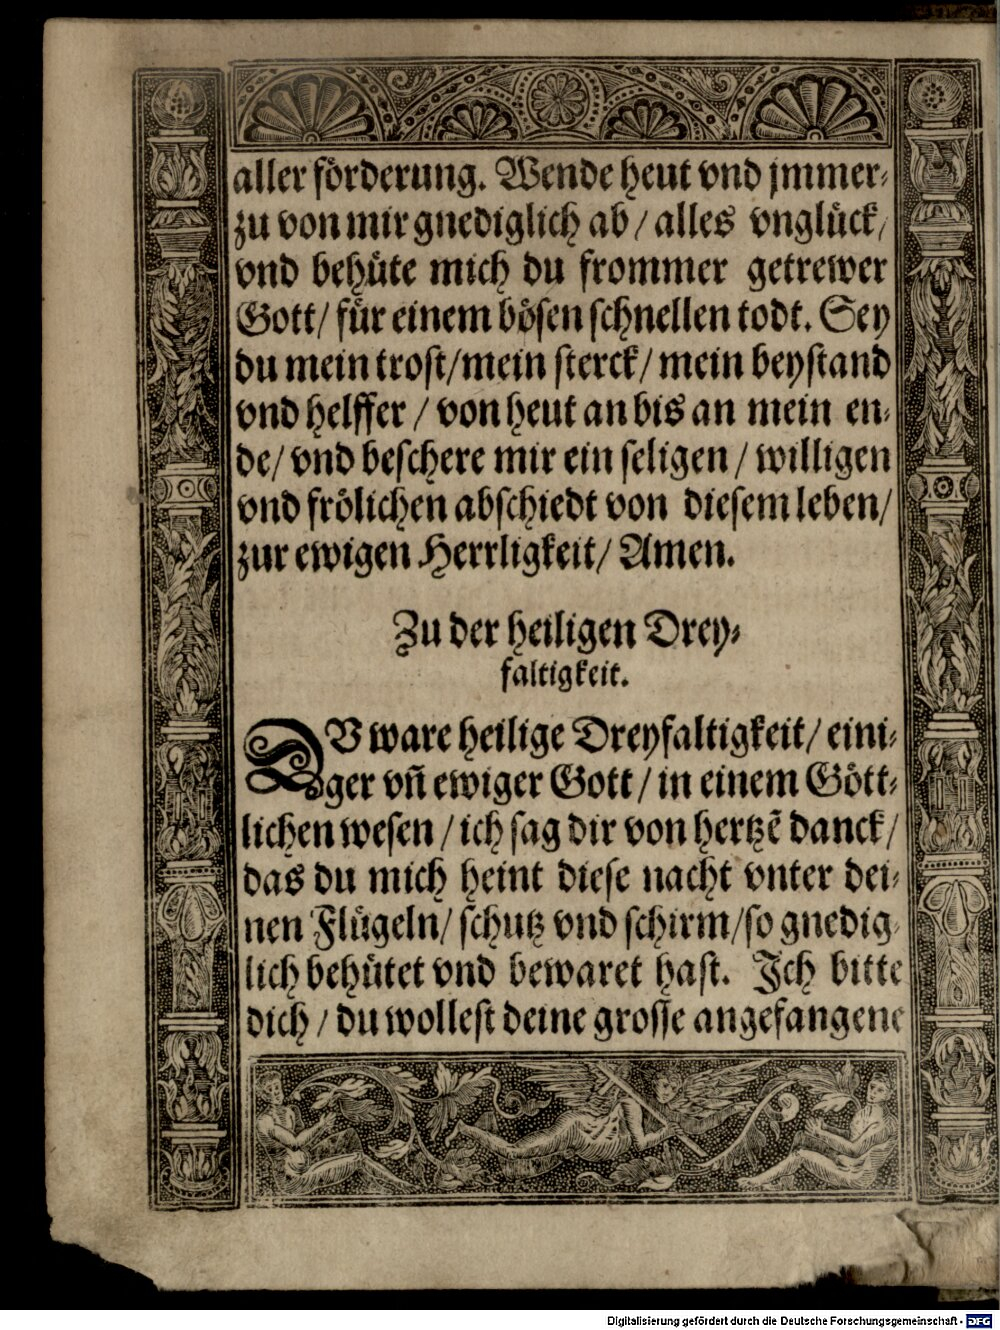 aller förderung. Wende heut vnd jmmer⸗
zu von mir gnediglich ab / alles vnglück /
vnd behüte mich du frommer getrewer
Gott / für einem bösen schnellen todt. Sey
du mein trost / mein sterck / mein beystand
vnd helffer / von heut an bis an mein en⸗
de / vnd beschere mir ein seligen / willigen
vnd frölichen abschiedt von diesem leben /
zur ewigen Herrligkeit / Amen.
Zu der heiligen Drey⸗
faltigkeit.
DV ware heilige Dreyfaltigkeit / eini⸗
ger vñ ewiger Gott / in einem Gött⸗
lichen wesen / ich sag dir von hertzẽ danck /
das du mich heint diese nacht vnter dei⸗
nen Flügeln / schutz vnd schirm / so gnedig⸗
lich behütet vnd bewaret hast. Ich bitte
dich / du wollest deine grosse angefangene
Digitalisierung gefördert durch die Deutsche Forschungsgemeinschaft - DFG